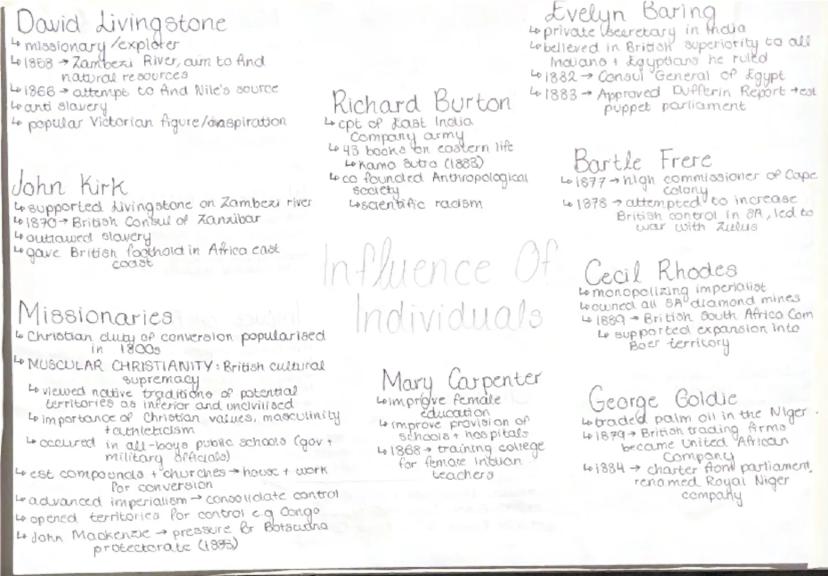 David Livingstone
↳ missionary/explorer
↳ 1858 → Zambezi River, aim to find
natural resources
↳ 1866 → attempt to find Nile's source
↳ anti slavery
↳ popular Victorian figure/inspiration
John Kirk
↳ supported Livingstone on Zambezi river
↳ 1870 → British Consul of Zanzibar
↳ outlawed slavery
↳ gave British foothold in Africa east
coast
Missionaries
↳ Christian duty of conversion popularised
in 1800s
↳ MUSCULAR CHRISTIANITY: British cultural
supremacy
↳ viewed native traditions of potential
territories as inferior and uncivilised
↳ importance of Christian values, masculinity
+ athleticism
↳ occured in all-boys public schools (gov +
military officials)
↳ est compounds + churches → house + work
for conversion
↳ advanced imperialism → consolidate control
↳ opened territories for control e.g Congo
↳ John Mackenzie → pressure for Botswana
protectorate (1885)
Richard Burton
↳ cpt of East India
Company army
↳ 43 books on eastern life
↳ Kama Sutra (1883)
↳ co founded Anthropological
society
↳ scientific racism
Influence Of
Individuals
Mary Carpenter
↳ improve female
education
↳ improve provision of
schools + hospitals
↳ 1868 → training college
for female Indian
teachers
Evelyn Baring
↳ private secretary in India
↳ believed in British superiority to all
Indians + Egyptians he ruled
↳ 1882 → Consul General of Egypt
↳ 1883 → Approved Dufferin Report → est
puppet parliament
Bartle Frere
↳ 1877 → high commissioner of Cape
colony
↳ 1878 → attempted to increase
British control in SA, led to
war with Zulus
Cecil Rhodes
↳ monopolizing imperialist
↳ owned all SA diamond mines
↳ 1889 → British South Africa Com
↳ supported expansion into
Boer territory
George Goldie
↳ traded palm oil in the Niger
↳ 1879 → British trading firms
became United African
Company
↳ 1884 → charter from parliament,
renamed Royal Niger
company